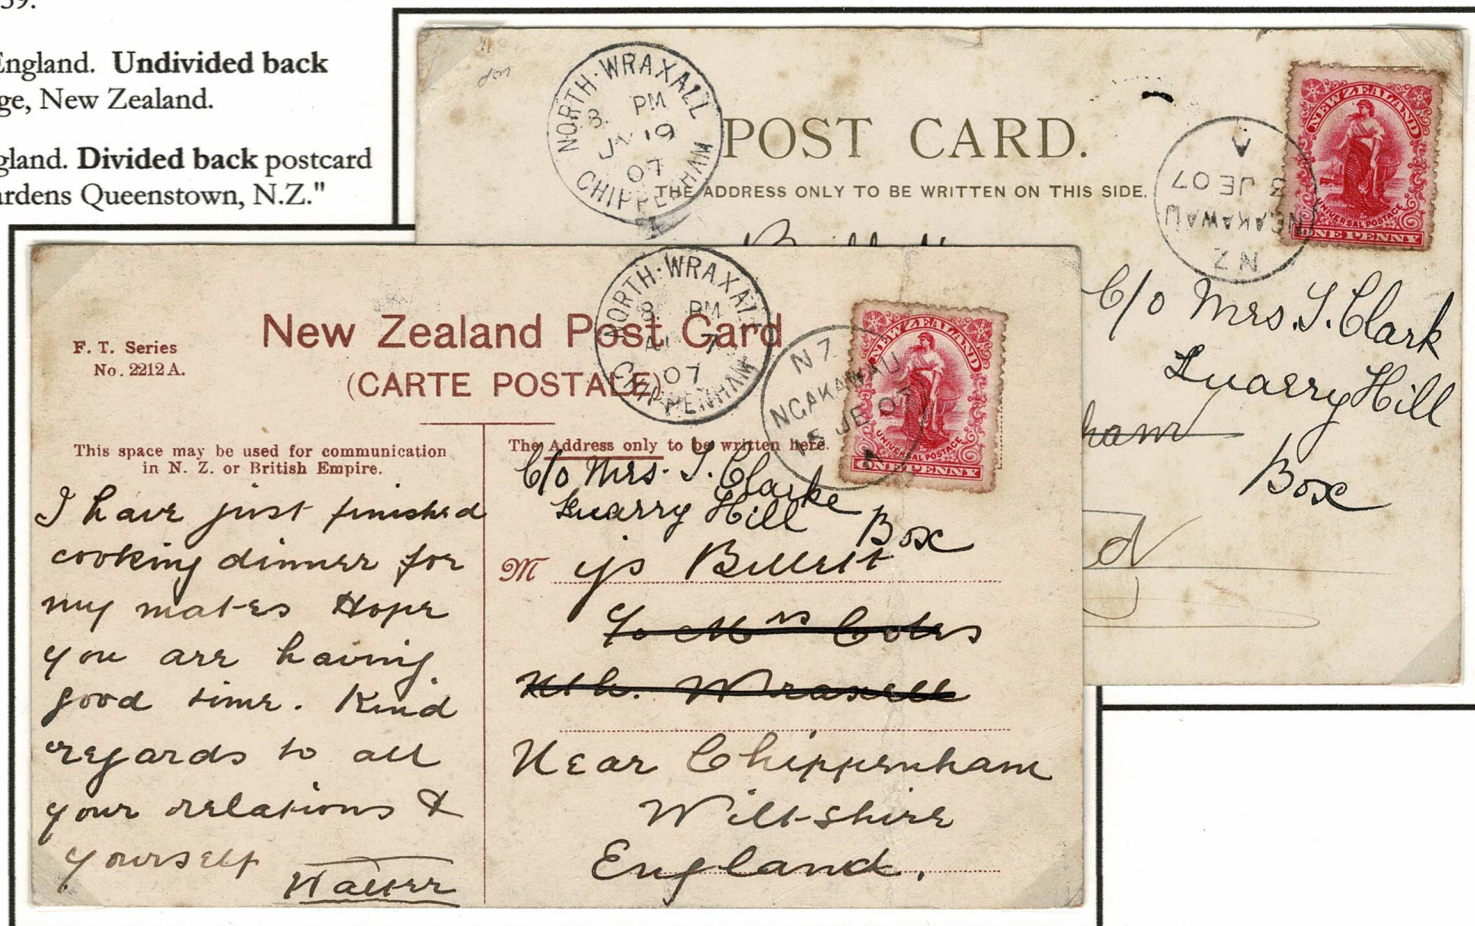 59.
England. Undivided back
ge, New Zealand.
gland. Divided back postcard
ardens Queenstown, N.Z."
NORTH·WRAXALL
8. PM
JY 19
07
CHIPPENHAM
POST CARD.
THE ADDRESS ONLY TO BE WRITTEN ON THIS SIDE.
NEW ZEALAND
UNIVERSAL POSTAGE
ONE PENNY
A
3 JE 07
NGAKAWAU
NZ
C/o Mrs. J. Clark
Quarry Hill
ham
Box
d
F. T. Series
No. 2212 A.
New Zealand Post Card
(CARTE POSTALE)
NORTH·WRAXALL
8. PM
7
07
CHIPPENHAM
NZ
NGAKAWAU
15 JE 07
A
NEW ZEALAND
UNIVERSAL POSTAGE
ONE PENNY
This space may be used for communication
in N. Z. or British Empire.
The Address only to be written here.
I have just finished
cooking dinner for
my mates Hope
you are having
good time. Kind
regards to all
your relations &
yourself
Walter
C/o Mrs. J. Clarke
Quarry Hill
Box
M
Billett
c/o Mrs Coles
Nth. Wraxell
Near Chippenham
Wiltshire
England.